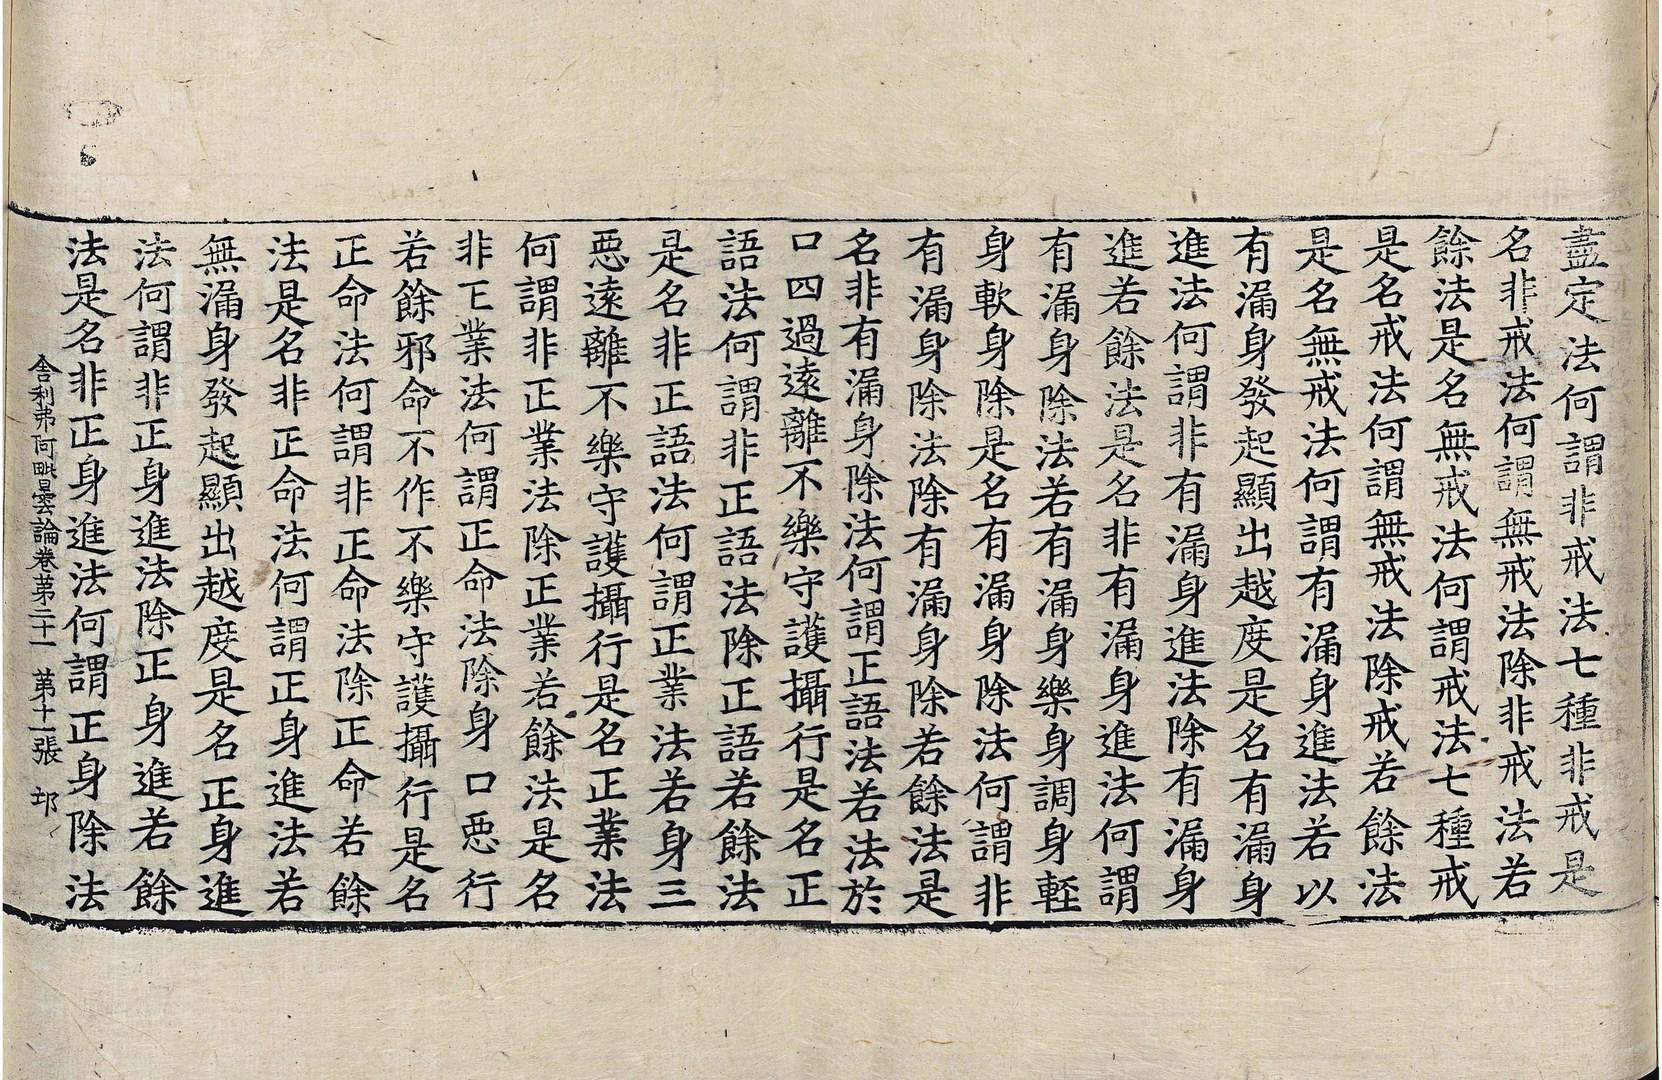 盡定法何謂非戒法七種非戒是
名非戒法何謂無戒法除非戒法若
餘法是名無戒法何謂戒法七種戒
是名戒法何謂無戒法除戒若餘法
是名無戒法何謂有漏身進法若以
有漏身發起顯出越度是名有漏身
進法何謂非有漏身進法除有漏身
進若餘法是名非有漏身進法何謂
有漏身除法若有漏身樂身調身軽
身軟身除是名有漏身除法何謂非
有漏身除法除有漏身除若餘法是
名非有漏身除法何謂正語法若法於
口四過遠離不樂守護攝行是名正
語法何謂非正語法除正語若餘法
是名非正語法何謂正業法若身三
惡遠離不樂守護攝行是名正業法
何謂非正業法除正業若餘法是名
非正業法何謂正命法除身口惡行
若餘邪命不作不樂守護攝行是名
正命法何謂非正命法除正命若餘
法是名非正命法何謂正身進法若
無漏身發起顯出越度是名正身進
法何謂非正身進法除正身進若餘
法是名非正身進法何謂正身除法
舍利弗阿毗曇論卷第二十一 第十一張 邙